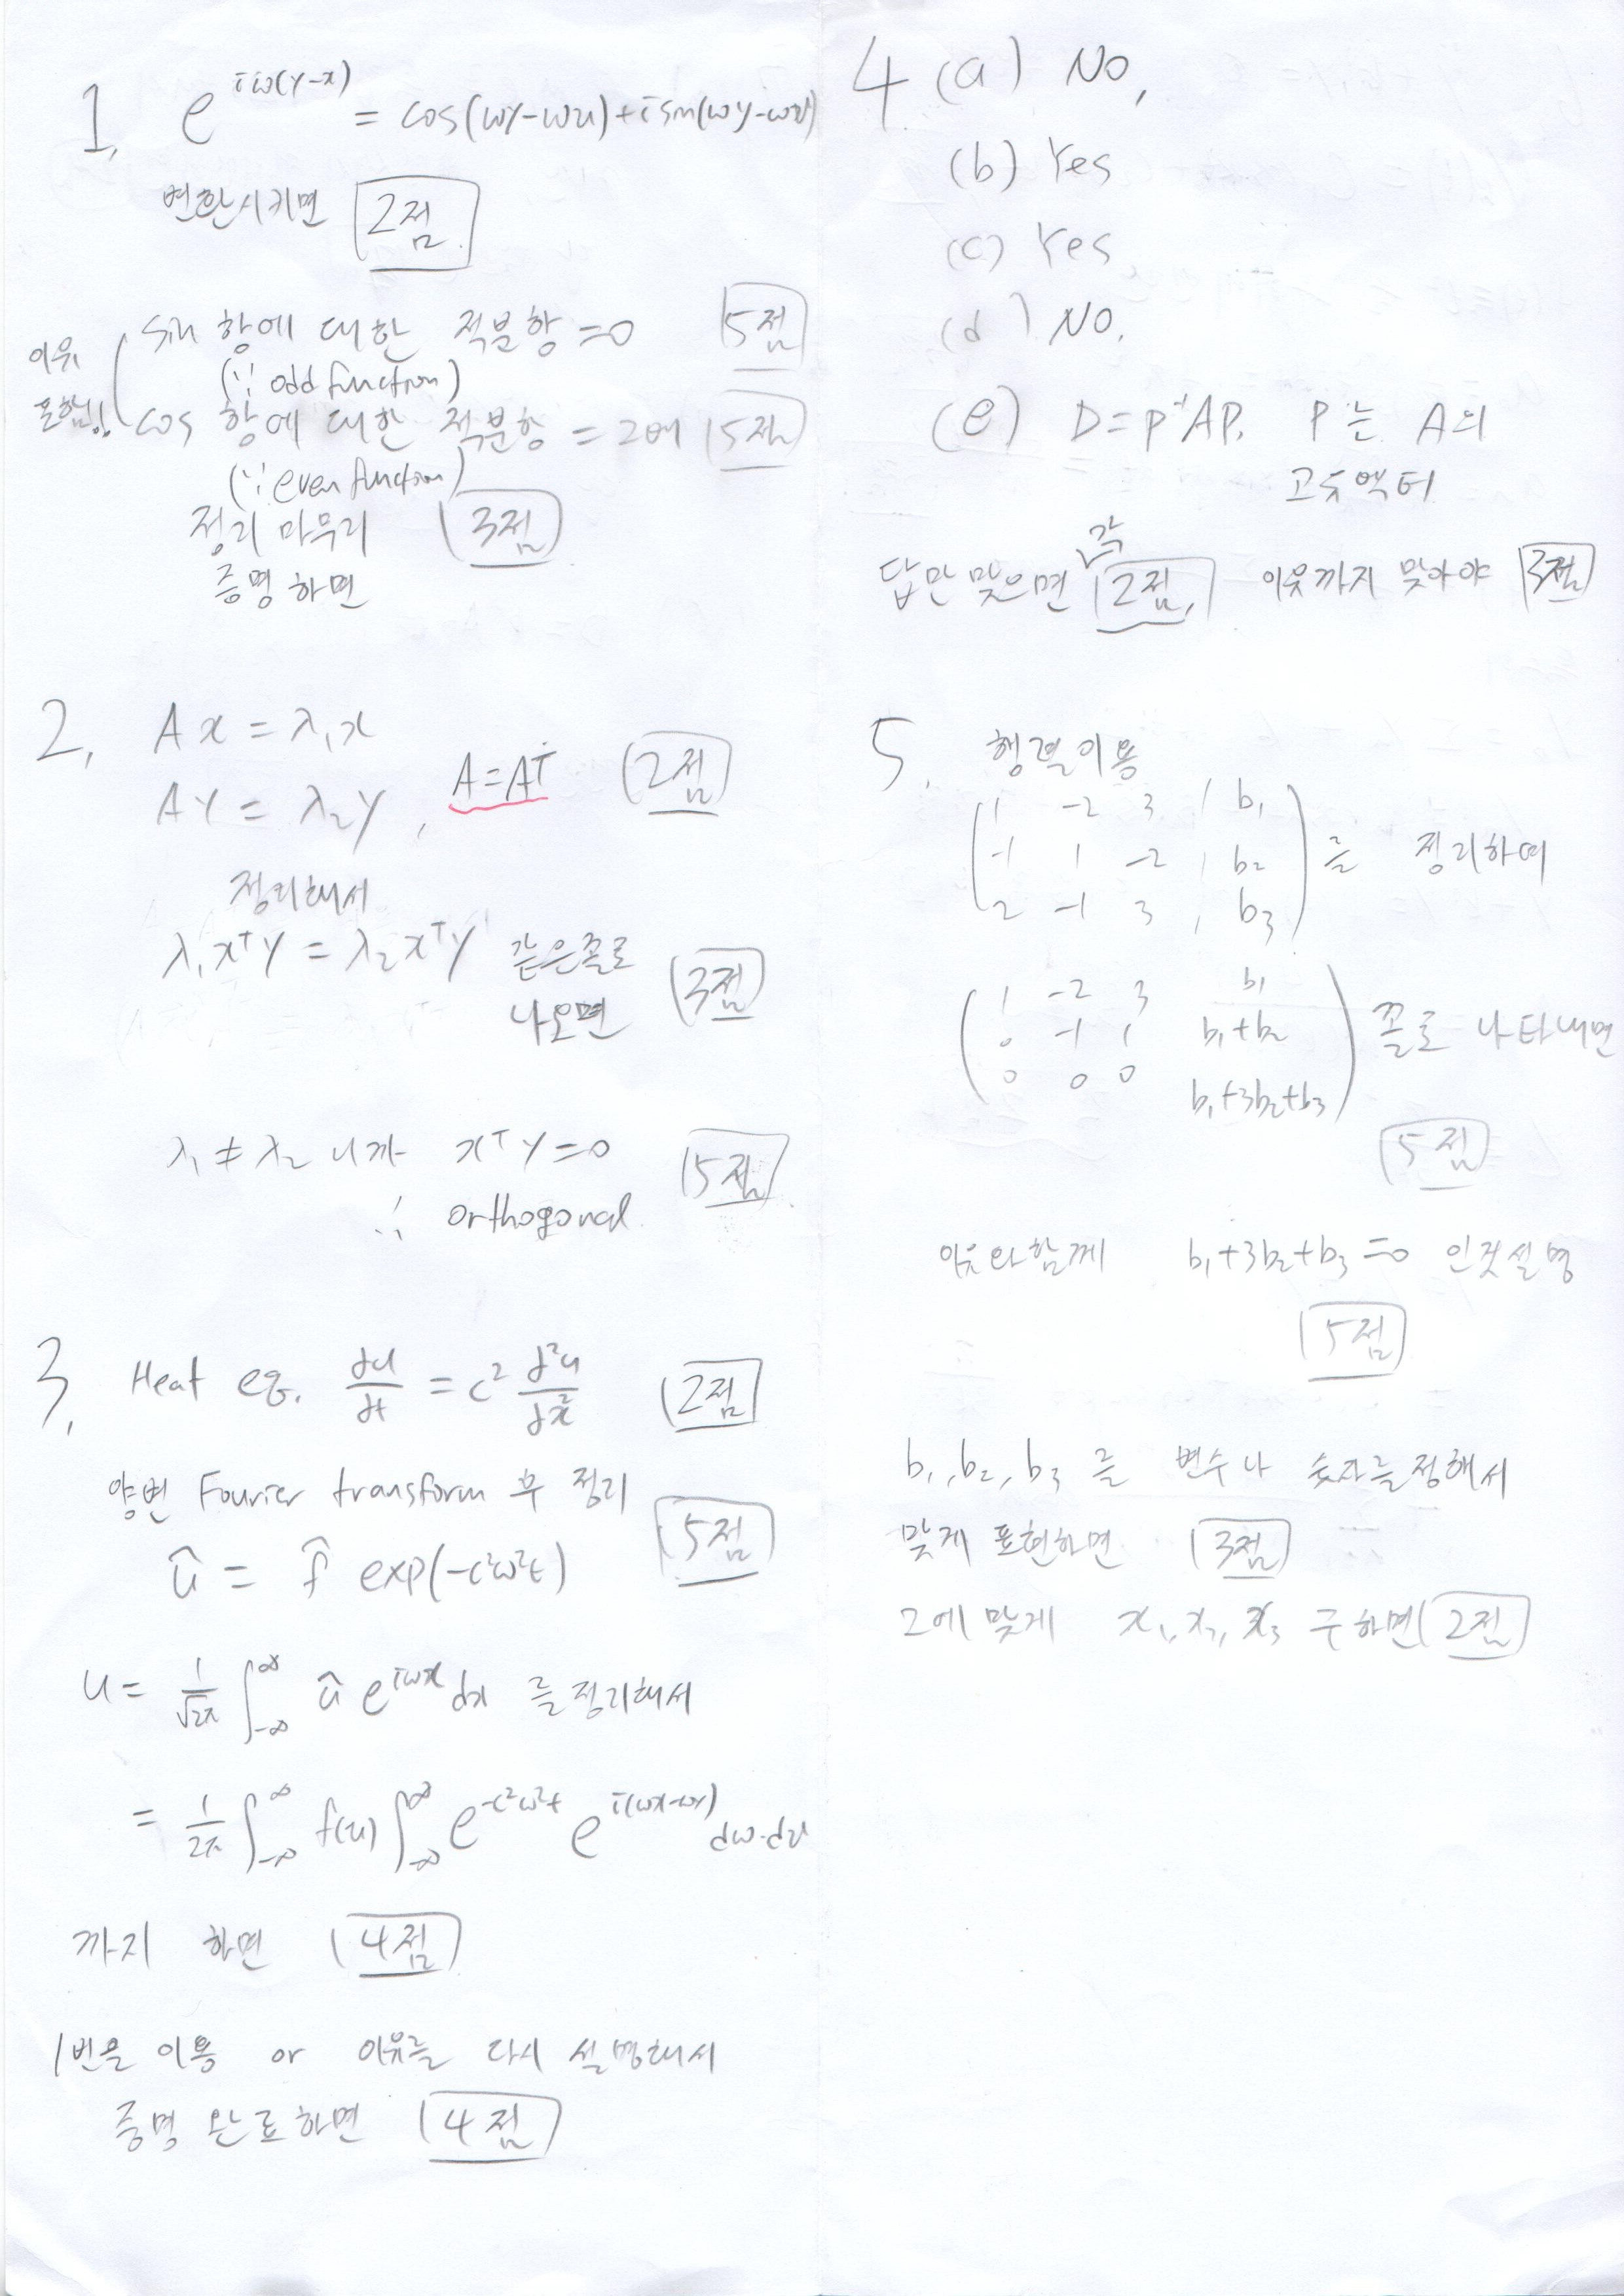 1. e^{iω(y-x)} = cos(ωy-ωx)+i sin(ωy-ωx)
변환시키면 2점.
sin 항에 대한 적분항 =0 5점
(∵ odd function)
이유 포함!!
cos 항에 대한 적분항 = 2배 5점
(∵ even function)
정리 마무리 3점
증명 하면
2. Ax = λ₁x
Ay = λ₂y, A=Aᵀ 2점
정리해서
λ₁xᵀy = λ₂xᵀy 같은꼴로
나오면 3점
λ₁ ≠ λ₂ 니까 xᵀy=0 5점
∴ orthogonal
3. Heat eq. ∂u/∂t = c² ∂²u/∂x² 2점
양변 Fourier transform 후 정리
û = f̂ exp(-c²ω²t) 5점
u = 1/√2π ∫_{-∞}^{∞} û e^{iωx} dx 를 정리해서
= 1/2π ∫_{-∞}^{∞} f(v) ∫_{-∞}^{∞} e^{-c²ω²t} e^{i(ωx-ωv)} dω·dv
까지 하면 4점
1번을 이용 or 이유를 다시 설명해서
증명 완료하면 4점
4 (a) No,
(b) Yes
(c) Yes
(d) No.
(e) D=P⁻¹AP, P는 A의
고유벡터
답만 맞으면 각 2점, 이유까지 맞아야 3점
5. 행렬이용
( 1 -2 3 | b₁
-1 1 -2 | b₂ ) 를 정리하여
2 -1 3 | b₃
( 1 -2 3 b₁
0 -1 1 b₁+b₂ ) 꼴로 나타내면
0 0 0 b₁+3b₂+b₃
5점
이유와함께 b₁+3b₂+b₃=0 인것설명
5점
b₁, b₂, b₃ 를 변수나 숫자를정해서
맞게 표현하면 3점
그에 맞게 x₁, x₂, x₃ 구하면 2점